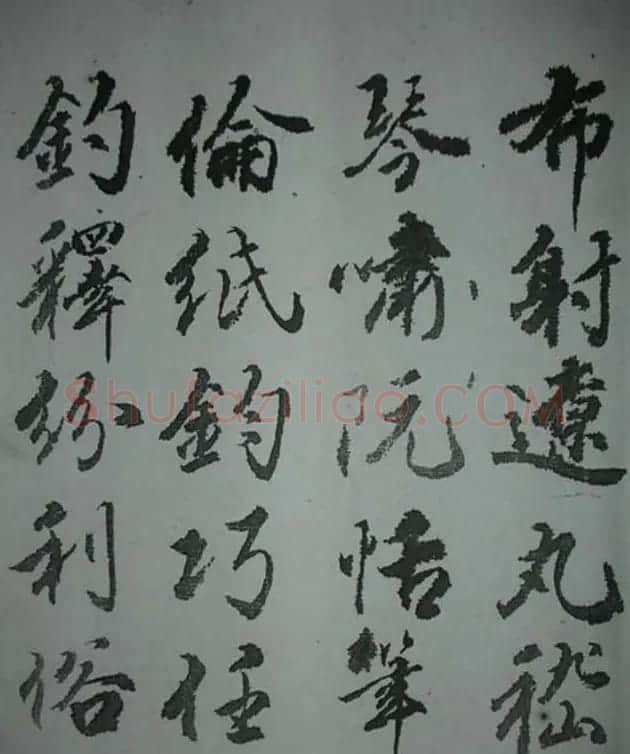 布射遼丸嵇
琴嘯阮恬筆
倫紙鈞巧任
釣釋紛利俗
Shufaziliao.COM